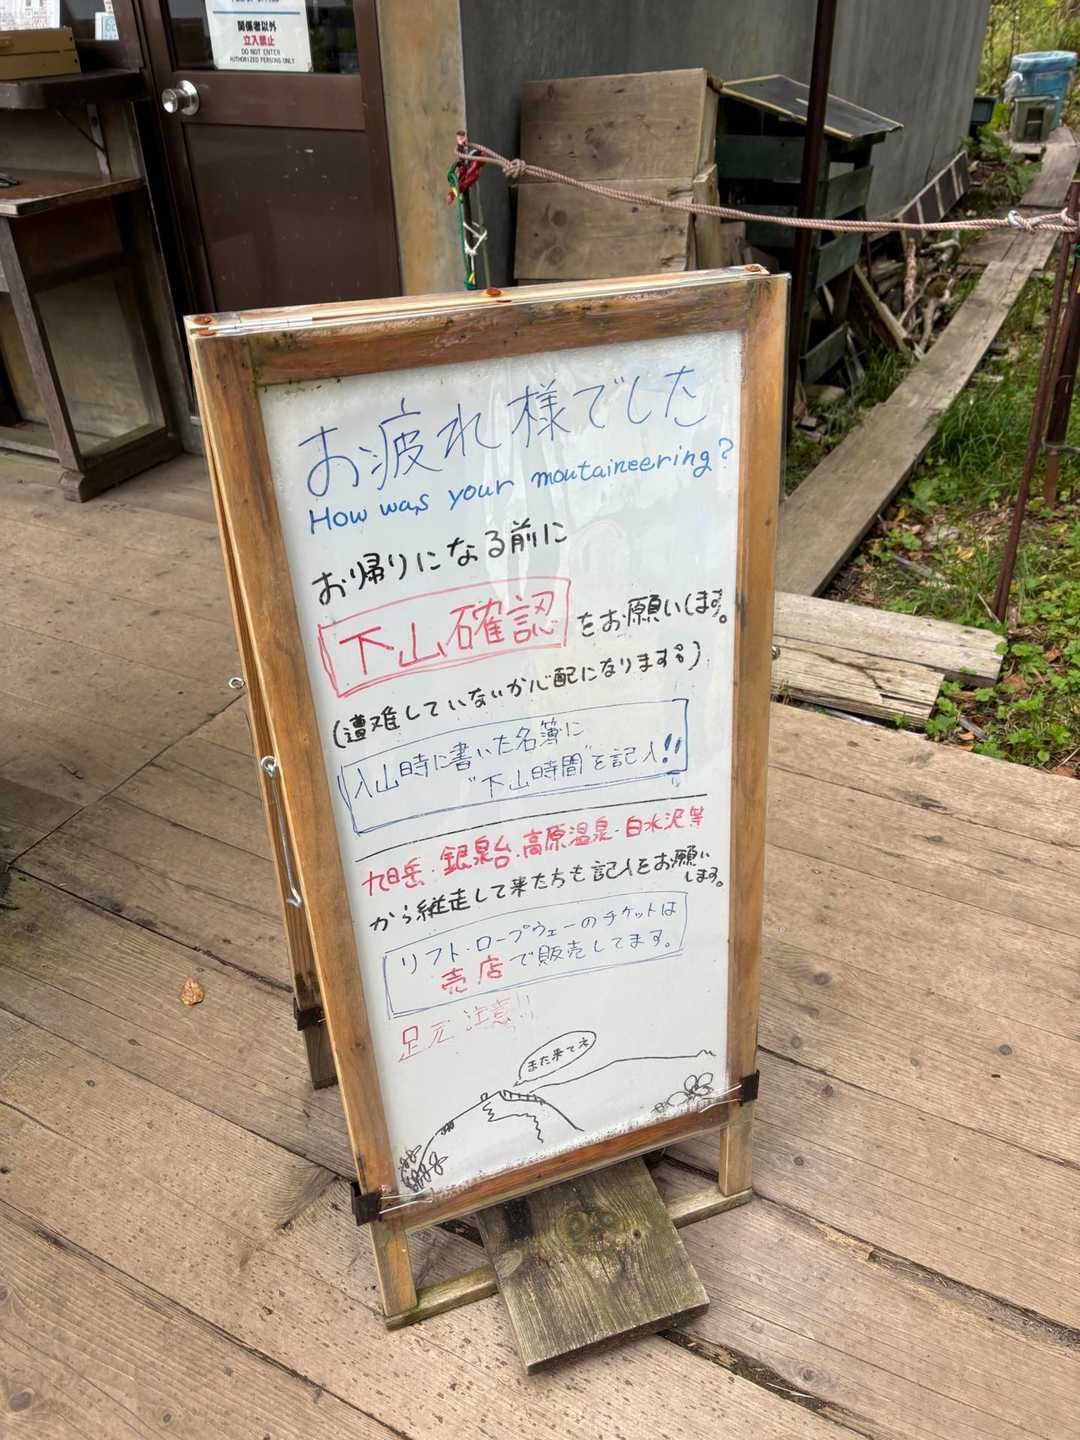 関係者以外
立入禁止
DO NOT ENTER
AUTHORIZED PERSONS ONLY
お疲れ様でした
How was your moutaineering?
お帰りになる前に
下山確認をお願いします。
(遭難していないか心配になります。)
入山時に書いた名簿に
"下山時間"を記入!!
旭岳・銀泉台・高原温泉・白水沢等
から縦走して来た方も記入をお願い
します。
リフト・ロープウェーのチケットは
売店で販売してます。
足元注意!!
また来てネ